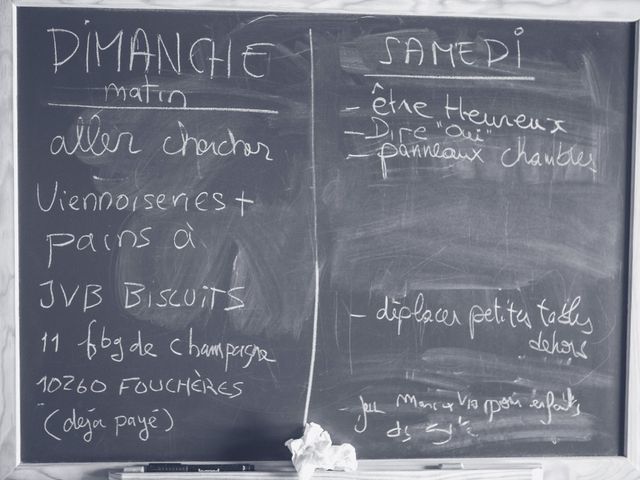 DIMANCHE
matin
aller chercher
Viennoiseries +
pains à
JVB BISCUITS
11 fbg de champagne
10260 FOUCHÈRES
(déjà payé)
SAMEDI
- être Heureux
- Dire "oui"
- panneaux chambres
- déplacer petites tables
dehors
pour enfants